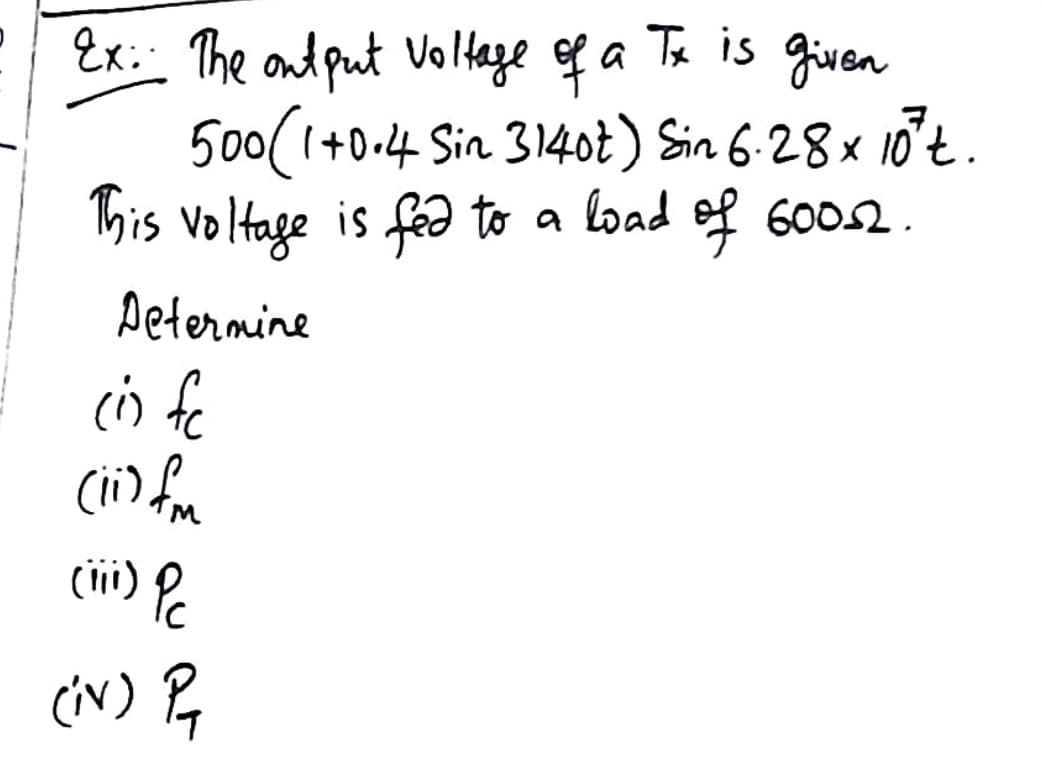 Ex:- The output Voltage of a Tx is given
500(1+0.4 Sin 3140t) Sin 6.28 x 10⁷t.
This Voltage is fed to a load of 600Ω.
Determine
(i) fc
(ii) fm
(iii) Pc
(iv) PT